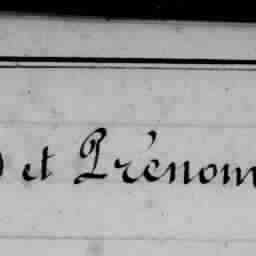 et Prénom